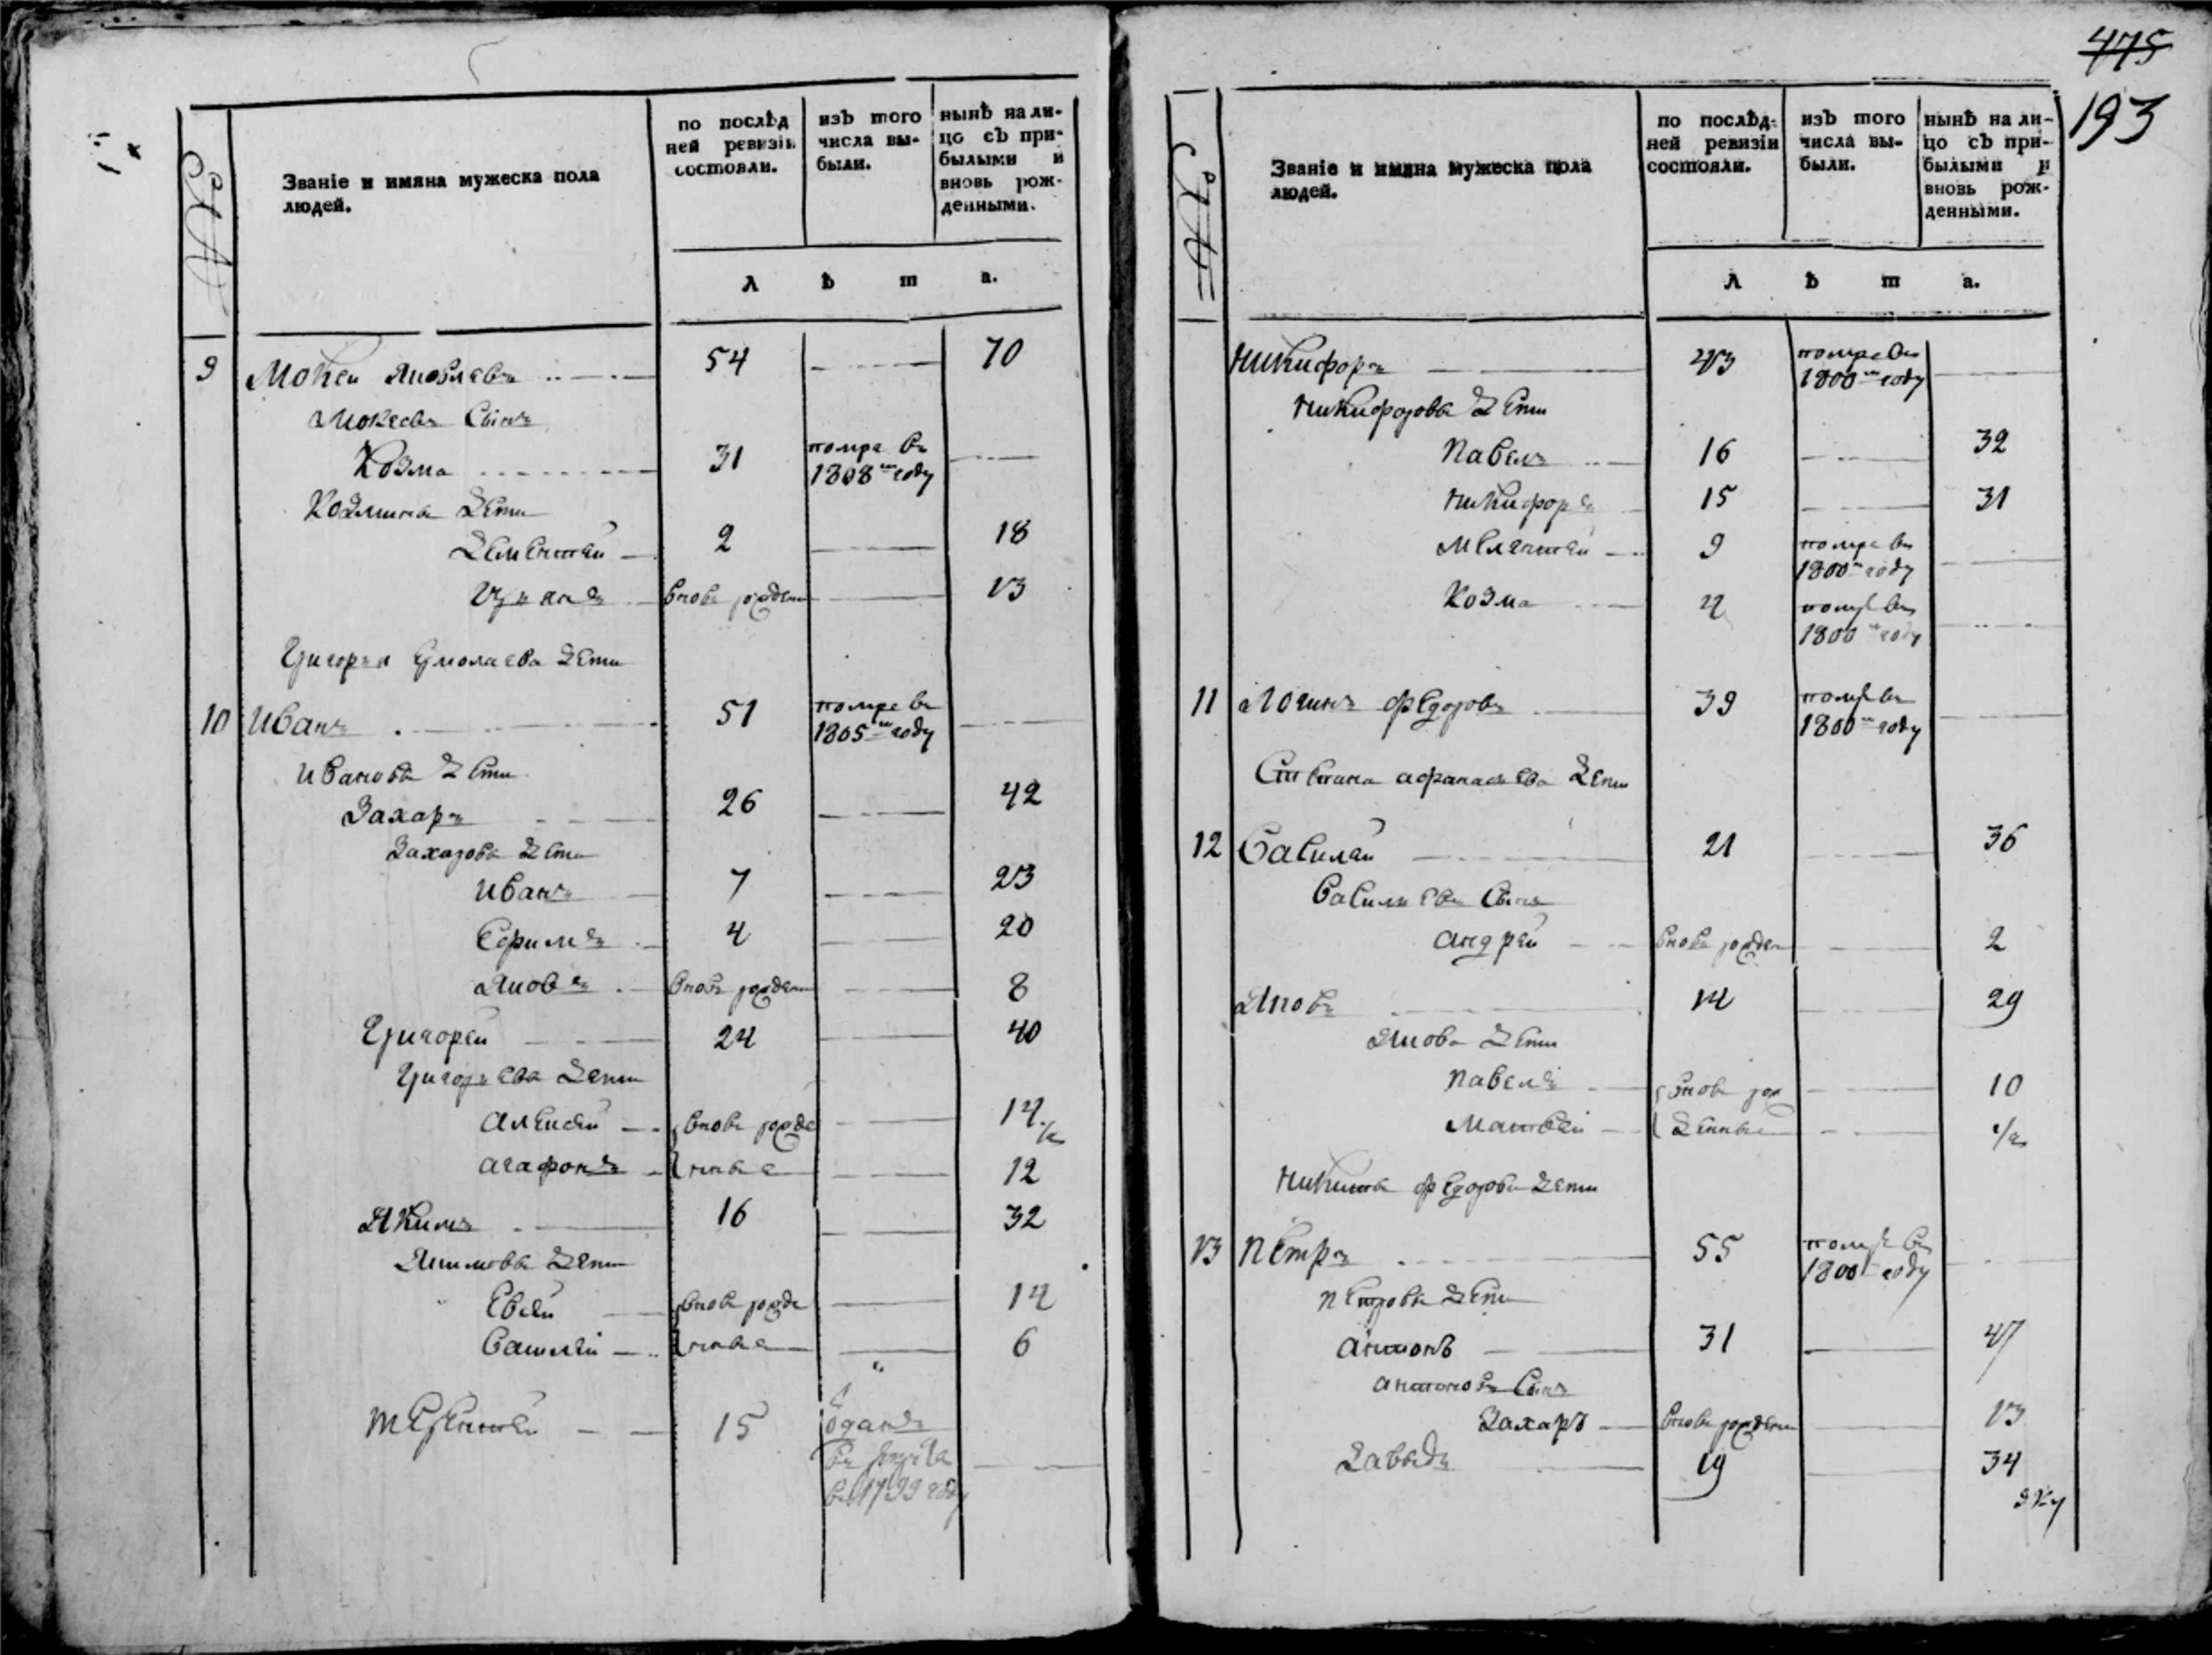 №
Званіе и имяна мужеска пола
людей.
по послѣд
ней ревизіи
состояли.
изъ того
числа вы-
были.
нынѣ на ли-
цо съ при-
былыми и
вновь рож-
денными.
л ѣ т а.
9 Мокей Яковлевъ 54 70
Мокеевъ Сынъ
Козма 31 помре въ 1808 м году
Козмины Дети
Дементей 2 18
вновь рожден 13
Григорья Ермолаева Дети
10 Иванъ 51 помре въ 1805 м году
Ивановы Дети
Захаръ 26 42
Захаровы Дети
Иванъ 7 23
Ефимъ 4 20
Яковъ вновь рожден 8
Григорей 24 40
Григорьевы Дети
Алексей вновь рожде 14 ½
Агафонъ нные 12
Якимъ 16 32
Якимовы Дети
Евсей вновь рожде 14
Василей нные 6
Терентей 15 Отданъ въ рекруты въ 1799 году
475
193
№
Званіе и имяна мужеска пола
людей.
по послѣд-
ней ревизіи
состояли.
изъ того
числа вы-
были.
нынѣ на ли-
цо съ при-
былыми и
вновь рож-
денными.
л ѣ т а.
Никифоръ 43 помре въ 1800 м году
Никифоровы Дети
Павелъ 16 32
Никифоръ 15 31
Мелентей 9 помре въ 1800 м году
Козма 4 помре въ 1800 м году
11 Логинъ Федоровъ 39 помре въ 1800 м году
Степана Афанасьева Дети
12 Василей 21 36
Васильевъ Сынъ
Андрей вновь рожден 2
Яковъ 14 29
Якова Дети
Павелъ вновь рож 10
Матвей денные ½
Никиты Федорова Дети
13 Петръ 55 помре въ 1800 году
Петровы Дети
Антонъ 31 47
Антоновъ Сынъ
Захаръ вновь рожден 13
Давыдъ 19 34